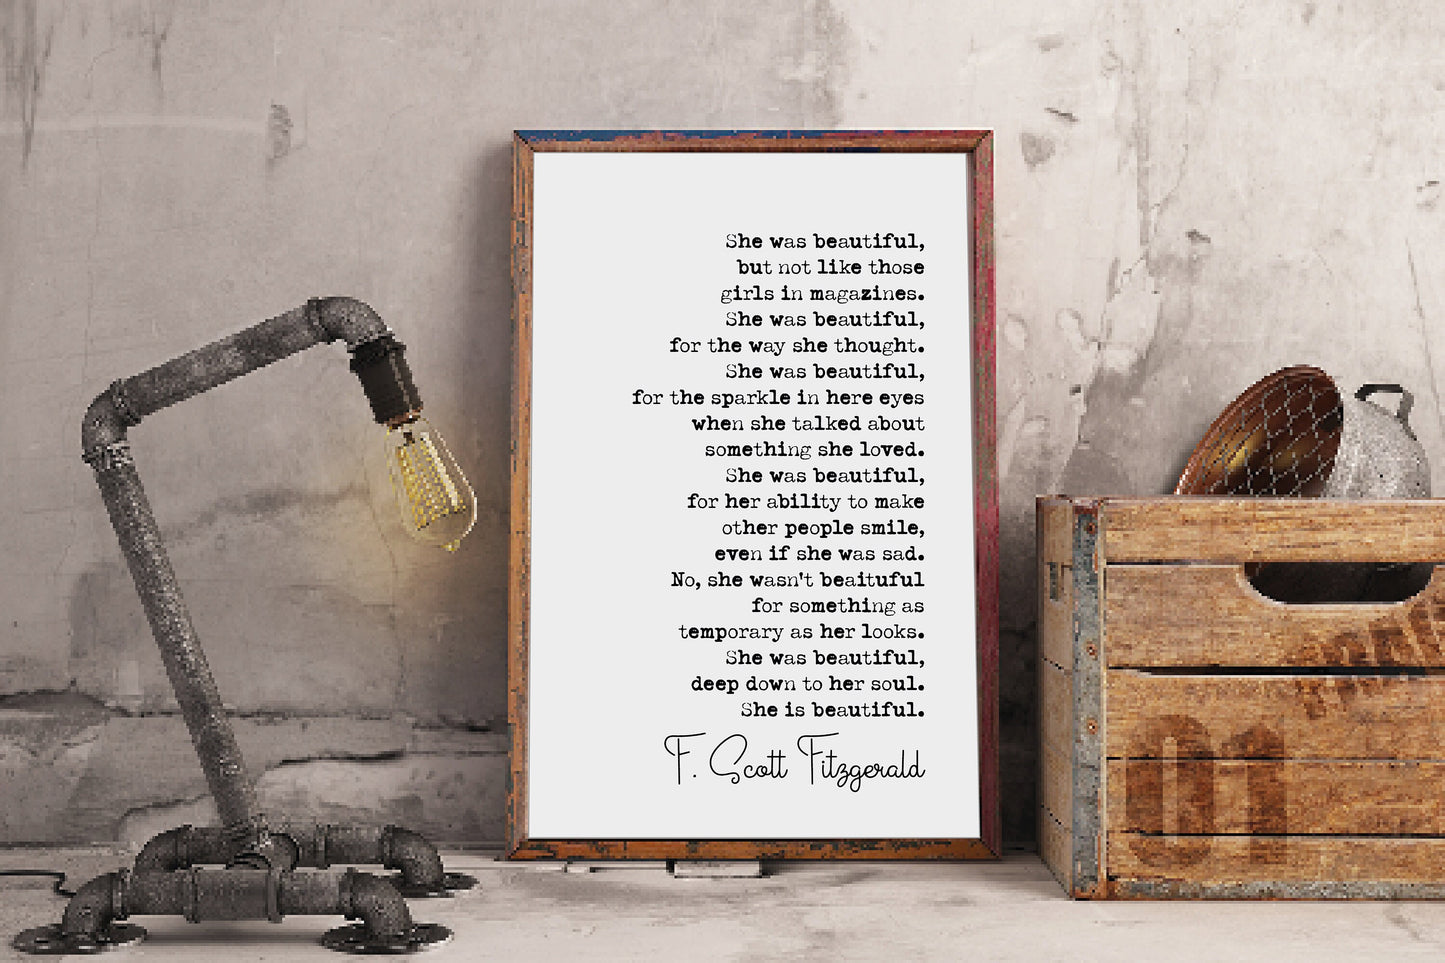 She was beautiful,
but not like those
girls in magazines.
She was beautiful,
for the way she thought.
She was beautiful,
for the sparkle in here eyes
when she talked about
something she loved.
She was beautiful,
for her ability to make
other people smile,
even if she was sad.
No, she wasn't beaituful
for something as
temporary as her looks.
She was beautiful,
deep down to her soul.
She is beautiful.
F. Scott Fitzgerald
01